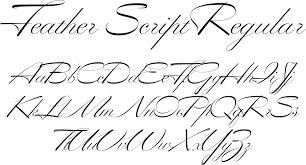 Feather Script Regular
AaBbCcDdEeFfGgHhIiJj
KkLlMmNnOoPpQqRrSs
TtUuVvWwXxYyZz